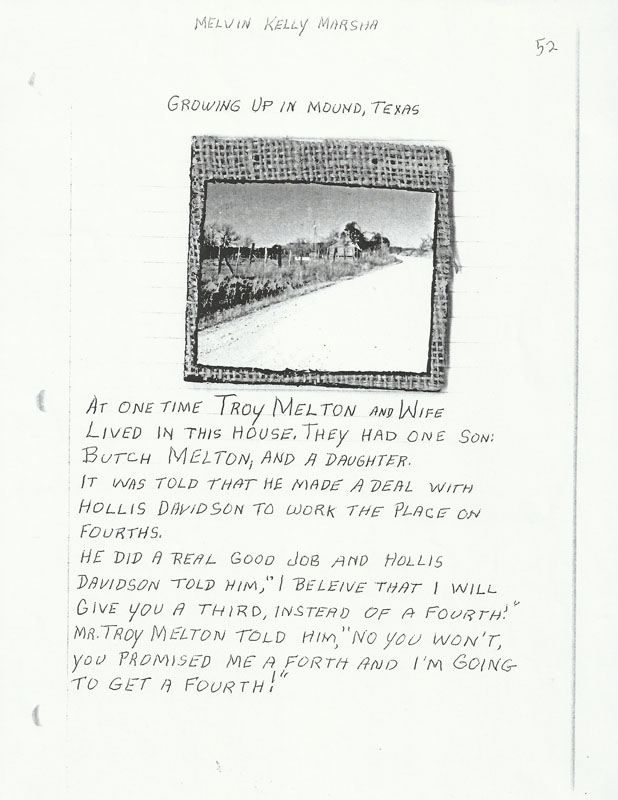 MELVIN KELLY MARSHA
52
GROWING UP IN MOUND, TEXAS
AT ONE TIME TROY MELTON AND WIFE
LIVED IN THIS HOUSE. THEY HAD ONE SON:
BUTCH MELTON, AND A DAUGHTER.
IT WAS TOLD THAT HE MADE A DEAL WITH
HOLLIS DAVIDSON TO WORK THE PLACE ON
FOURTHS.
HE DID A REAL GOOD JOB AND HOLLIS
DAVIDSON TOLD HIM, "I BELEIVE THAT I WILL
GIVE YOU A THIRD, INSTEAD OF A FOURTH!"
MR. TROY MELTON TOLD HIM, "NO YOU WON'T,
YOU PROMISED ME A FORTH AND I'M GOING
TO GET A FOURTH!"